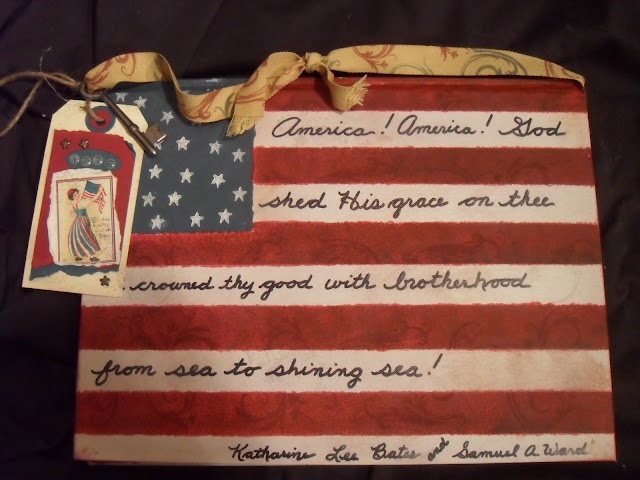 America! America! God
shed His grace on thee
crowned thy good with brotherhood
from sea to shining sea!
Katharine Lee Bates and Samuel A. Ward